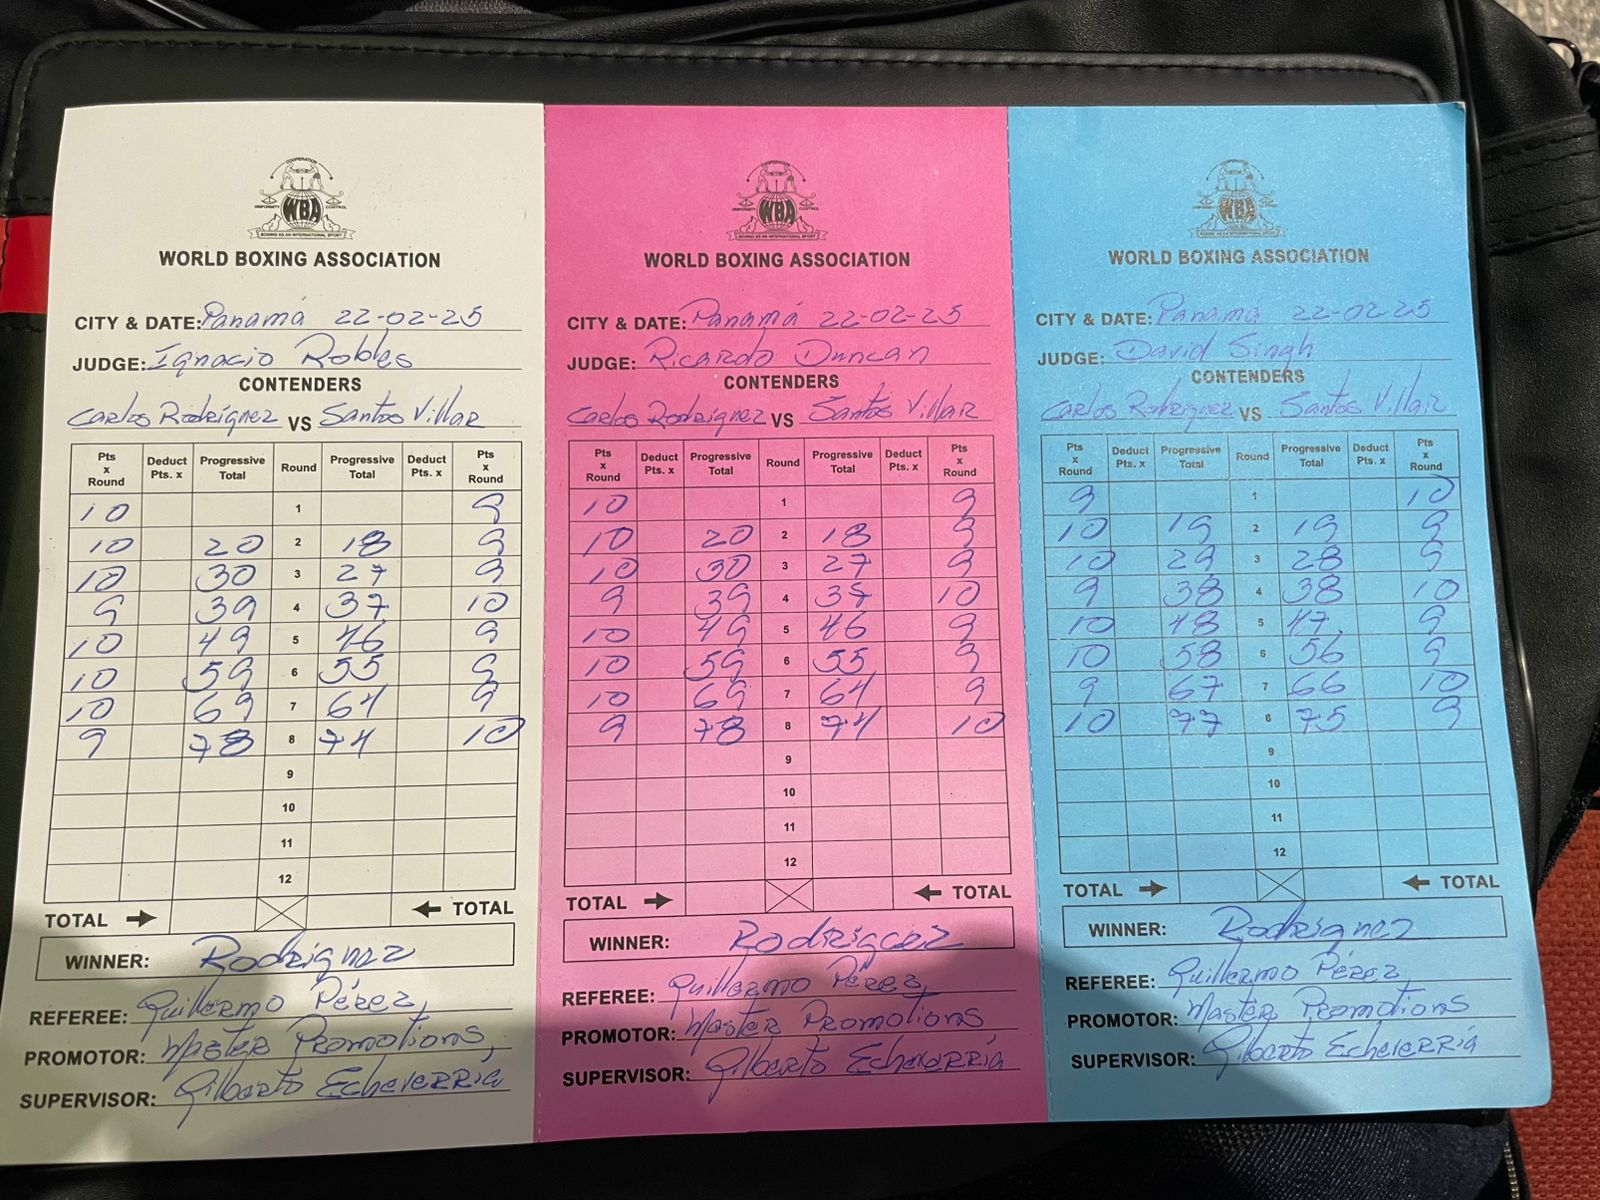 COOPERATION
UNIFORMITY WBA CONTROL
BOXING AS AN INTERNATIONAL SPORT
WORLD BOXING ASSOCIATION
CITY & DATE: Panamá 22-02-25
JUDGE: Ignacio Robles
CONTENDERS
Carlos Rodríguez VS Santos Villar
Pts x Round Deduct Pts. x Progressive Total Round Progressive Total Deduct Pts. x Pts x Round
10 1 9
10 20 2 18 9
10 30 3 27 9
9 39 4 37 10
10 49 5 46 9
10 59 6 55 9
10 69 7 64 9
9 78 8 74 10
9
10
11
12
TOTAL → ← TOTAL
WINNER: Rodríguez
REFEREE: Guillermo Pérez
PROMOTOR: Master Promotions
SUPERVISOR: Gilberto Echeverría
WBA
WORLD BOXING ASSOCIATION
CITY & DATE: Panamá 22-02-25
JUDGE: Ricardo Duncan
CONTENDERS
Carlos Rodríguez VS Santos Villar
Pts x Round Deduct Pts. x Progressive Total Round Progressive Total Deduct Pts. x Pts x Round
10 1 9
10 20 2 18 9
10 30 3 27 9
9 39 4 37 10
10 49 5 46 9
10 59 6 55 9
10 69 7 64 9
9 78 8 74 10
9
10
11
12
TOTAL → ← TOTAL
WINNER: Rodríguez
REFEREE: Guillermo Pérez
PROMOTOR: Master Promotions
SUPERVISOR: Gilberto Echeverría
WBA
WORLD BOXING ASSOCIATION
CITY & DATE: Panamá 22-02-25
JUDGE: David Singh
CONTENDERS
Carlos Rodríguez VS Santos Villar
Pts x Round Deduct Pts. x Progressive Total Round Progressive Total Deduct Pts. x Pts x Round
9 1 10
10 19 2 19 9
10 29 3 28 9
9 38 4 38 10
10 48 5 47 9
10 58 6 56 9
9 67 7 66 10
10 77 8 75 9
9
10
11
12
TOTAL → ← TOTAL
WINNER: Rodríguez
REFEREE: Guillermo Pérez
PROMOTOR: Master Promotions
SUPERVISOR: Gilberto Echeverría